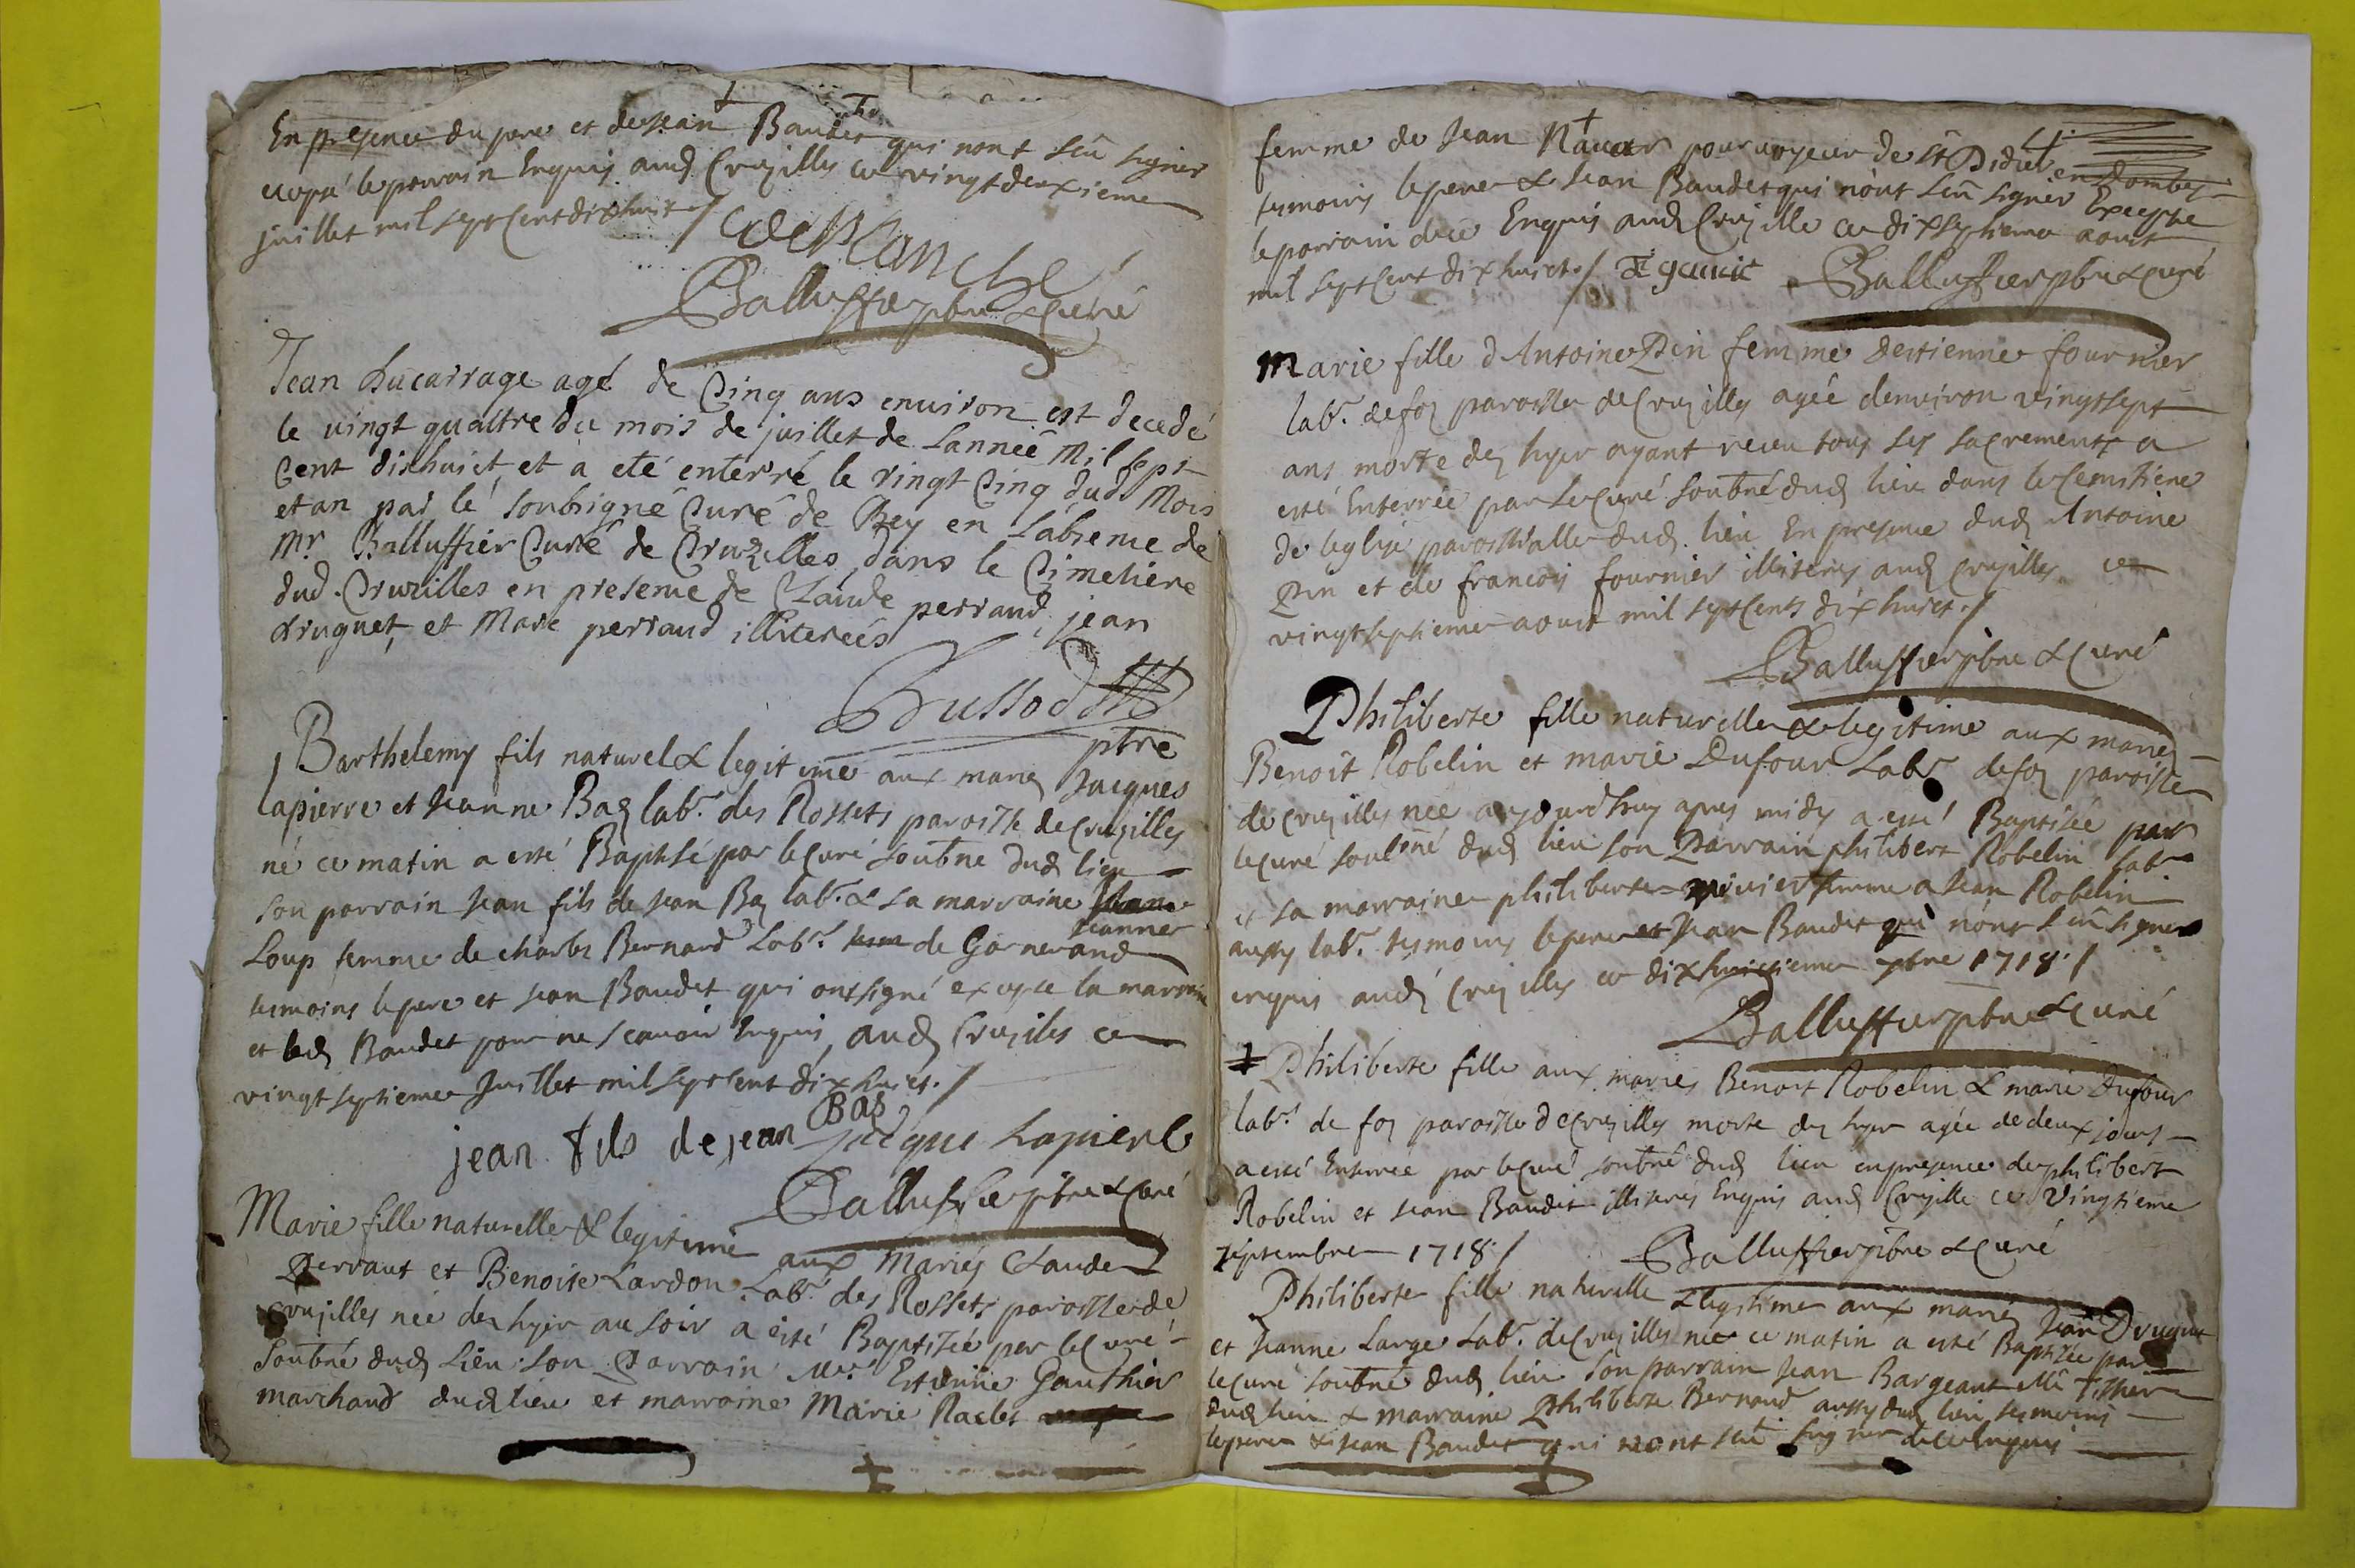 En presence du pere et de Jean Baudet qui nont sceu signer
excepté le parrain Enquis aud Cruzilles ce vingt deuxieme
juillet mil sept Cent dix huit /.
deblanche
Balluffier pbre & Curé
Jean Ducarrage agé de Cinq ans environ est decedé
le vingt quattre du mois de juillet de Lanneé Mil sept
Cent dixhuict, et a eté enterré le vingt Cinq dud Mois
et an par lé soubsigné Curé de Bey en Labsence de
Mr Balluffier Curé de Cruzilles, dans le Cimetiére
dud. Cruzilles en presence de Claude perraud, jean
druguet, et Mare perraud illitereés
Brussod
ptre
Barthelemy fils naturel & legitime aux mariez Jacques
lapierre et Jeanne Baz labr. des Rossets paroisse de Cruzilles
né ce matin a esté Baptisé par le Curé soubne dud lieu
son parrain Jean fils de Jean Baz labr. & sa marraine
Jeanne
Loup femme de charles Bernard Labr. de Garnerand
tesmoins le pere et Jean Baudet qui ont signé excepte la marraine
et led Baudet pour ne scavoir Enquis, aud Cruziles ce
vingt septieme Juillet mil sept cent dix huict. /
jean fils de jean Bas
jacque Lapierle
Balluffier pbre & Curé
Marie fille naturelle & legitime aux Mariés Claude
Perraut et Benoite Lardon Labr. des Rossets paroisse de
Cruzilles née dez hyer au soir a esté Baptisée per le Curé
soubné dud Lieu son Parrain Mre. Estienne Gauthier
marchand dud lieu et marraine Marie Raclet
femme de Jean pourvoyeur de St Didiet en Dombes
tesmoins le pere & Jean Baudet qui nont sceu signer Excepte
le parrain de ce Enquis aud Cruzille ce dix septieme aoust
mil sept Cent dix huict. /
Balluffier pbre & Curé
Marie fille d Antoine Pin femme destienne fournier
labr. de foz paroisse de Cruzilles agée denviron vingt sept
ans morte dez hyer ayant receu tous ses sacrements a
esté Enterrée par le Curé soubné dud lieu dans le Cemitiere
de leglise paroissialle dud. lieu En presence dud Antoine
Pin et de francois fournier illiterés aud Cruzilles ce
vingt septieme aoust mil sept Cents dix huict. /
Balluffier pbre & Curé
Philiberte fille naturelle & legitime aux mariez
Benoit Robelin et marie Dufour Labr de foz paroisse
de Cruzilles née aujourdhuy apres midy a esté Baptisée par
le Curé soubné dud lieu son Parrain philibert Robelin labr
et sa marraine philiberte femme a Jean Robelin
aussy labr. tesmoins le pere et Jean Baudet qui nont sceu signer
enquis aud Cruzilles ce dixhuictieme 7bre 1718. /
Balluffier pbre & Curé
Philiberte fille aux mariés Benoit Robelin & marie Dufour
labr. de foz paroisse de Cruzilles morte dez hyer agée de deux jours
a esté Enterrée par le Curé soubné dud lieu en presence de philibert
Robelin et Jean Baudet illiterés Enquis aud Cruzille ce Vingtieme
septembre 1718. /
Balluffier pbre & Curé
Philiberte fille naturelle & legitime aux mariez Jean Druguet
et Jeanne Large Labr. de Cruzilles née ce matin a esté Baptizée par
le Curé soubné dud lieu son parrain Jean Bargeant tissier
dud lieu & marraine Philiberte Bernard aussy dud lieu, tesmoins
le pere & Jean Baudet qui nont sceu signer de ce Enquis